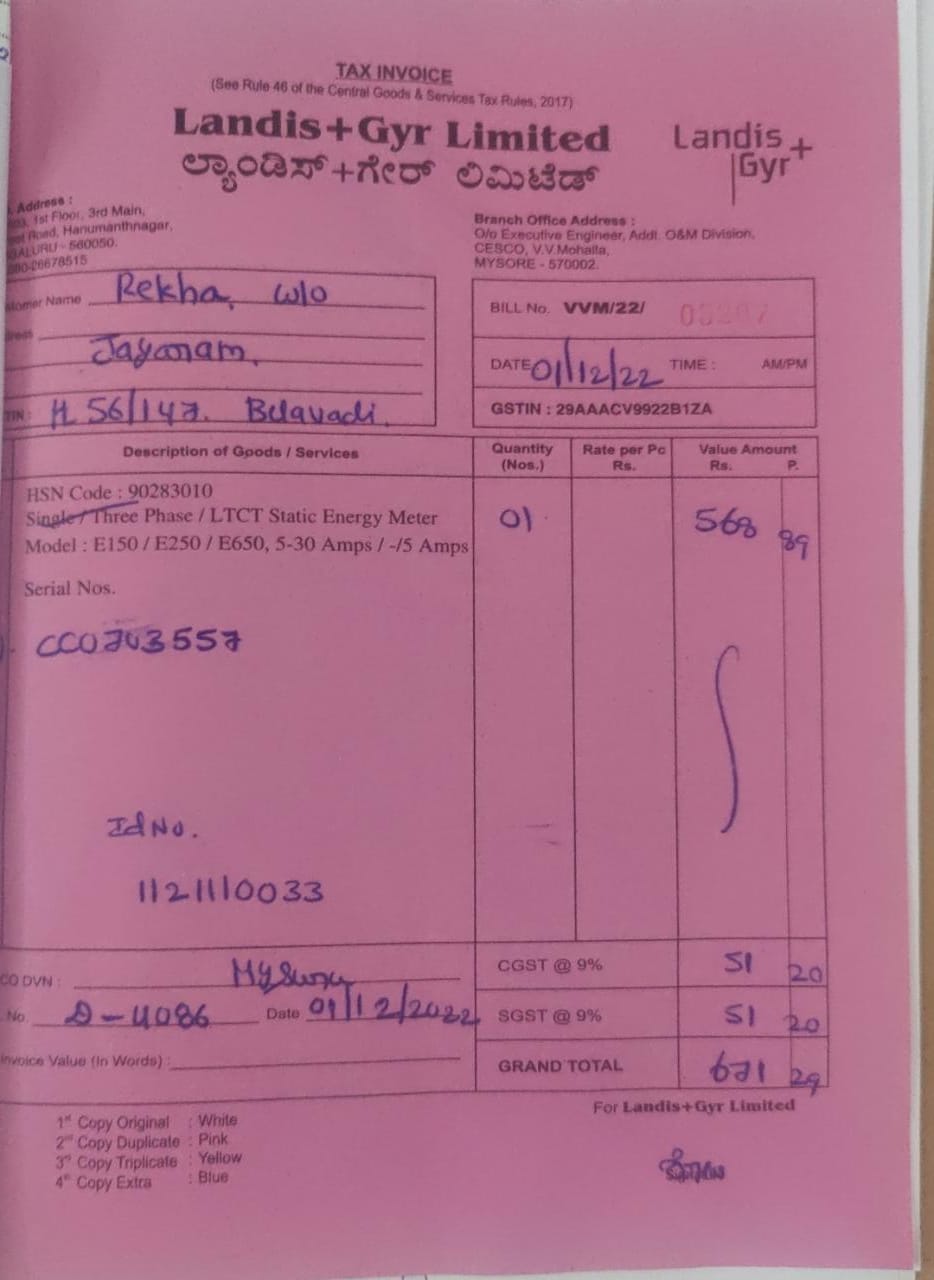 TAX INVOICE
(See Rule 46 of the Central Goods & Services Tax Rules, 2017)
Landis+Gyr Limited
ಲ್ಯಾಂಡಿಸ್+ಗೇರ್ ಲಿಮಿಟೆಡ್
Landis+
Gyr
Address :
1st Floor, 3rd Main,
Road, Hanumanthnagar,
560050.
26678515
Branch Office Address :
O/o Executive Engineer, Addl. O&M Division,
CESCO, V.V.Mohalla,
MYSORE - 570002.
Name Rekha, w/o
BILL No. VVM/22/
DATE 01/12/22 TIME : AM/PM
56/147. Belavadi.
GSTIN : 29AAACV9922B1ZA
Description of Goods / Services
Quantity (Nos.)
Rate per Pc Rs.
Value Amount Rs. P.
HSN Code : 90283010
Single / Three Phase / LTCT Static Energy Meter 01 568 89
Model : E150 / E250 / E650, 5-30 Amps / -/5 Amps
Serial Nos.
CC0703557
Id No.
1121110033
DVN : Mysuru
CGST @ 9% 51 20
No. D-4086 Date 01/12/2022
SGST @ 9% 51 20
Invoice Value (In Words) :
GRAND TOTAL 671 29
For Landis+Gyr Limited
1st Copy Original : White
2nd Copy Duplicate : Pink
3rd Copy Triplicate : Yellow
4th Copy Extra : Blue